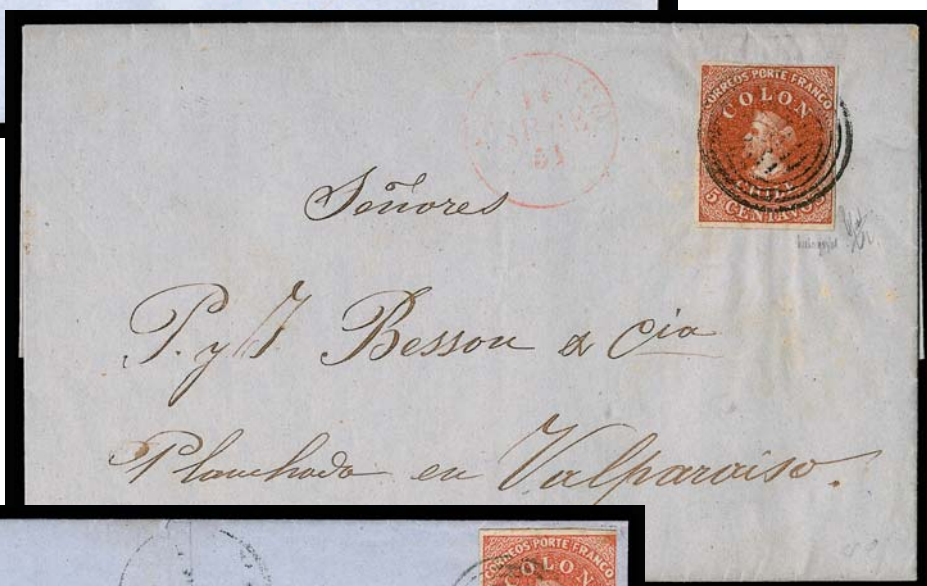 CORREOS PORTE FRANCO
COLON
CHILE
5 CENTAVOS
Señores
P. y J Besson & Cia
Planchada en Valparaiso.
CORREOS PORTE FRANCO
COLON